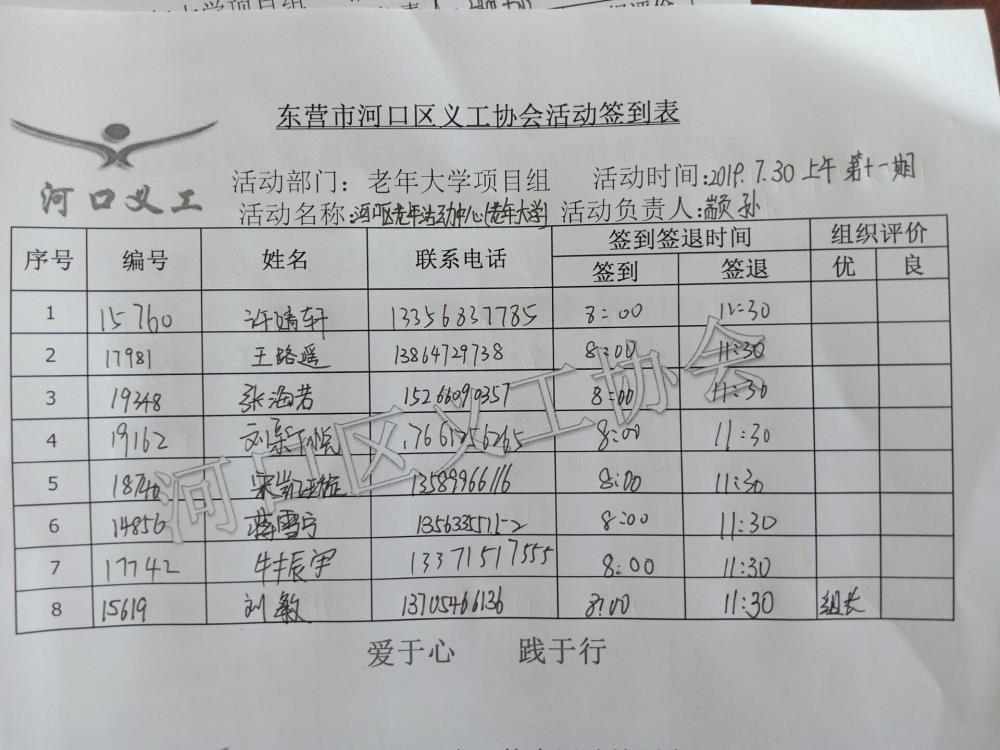 东营市河口区义工协会活动签到表
河口义工
活动部门：老年大学项目组 活动时间:2019.7.30上午 第十一期
活动名称:河口区老年活动中心(老年大学) 活动负责人:
序号 编号 姓名 联系电话 签到签退时间 组织评价
签到 签退 优 良
1 15760 许婧轩 13356837785 8:00 11:30
2 17981 王路遥 13864729738 8:00 11:30
3 19348 张海若 15266090357 8:00 11:30
4 19162 8:00 11:30
5 18746 13589966116 8:00 11:30
6 14856 蒋雪宁 8:00 11:30
7 17742 牛振宇 13371517555 8:00 11:30
8 15619 刘敏 13705466136 8:00 11:30 组长
河口区义工协会
爱于心 践于行